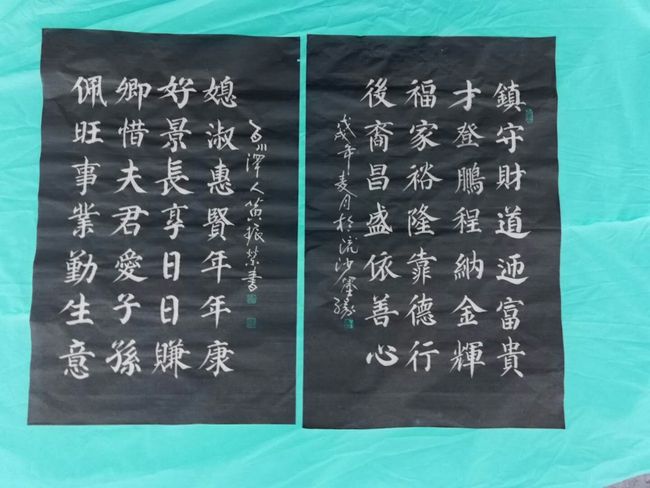 鎮守財道迊富貴
才登鵬程納金輝
福家裕隆靠德行
後裔昌盛依善心
戊戌年麦月於流沙
澤人黃振榮書
媳淑惠賢年年康
好景長享日日賺
卿惜夫君愛子孫
佩旺事業勤生意